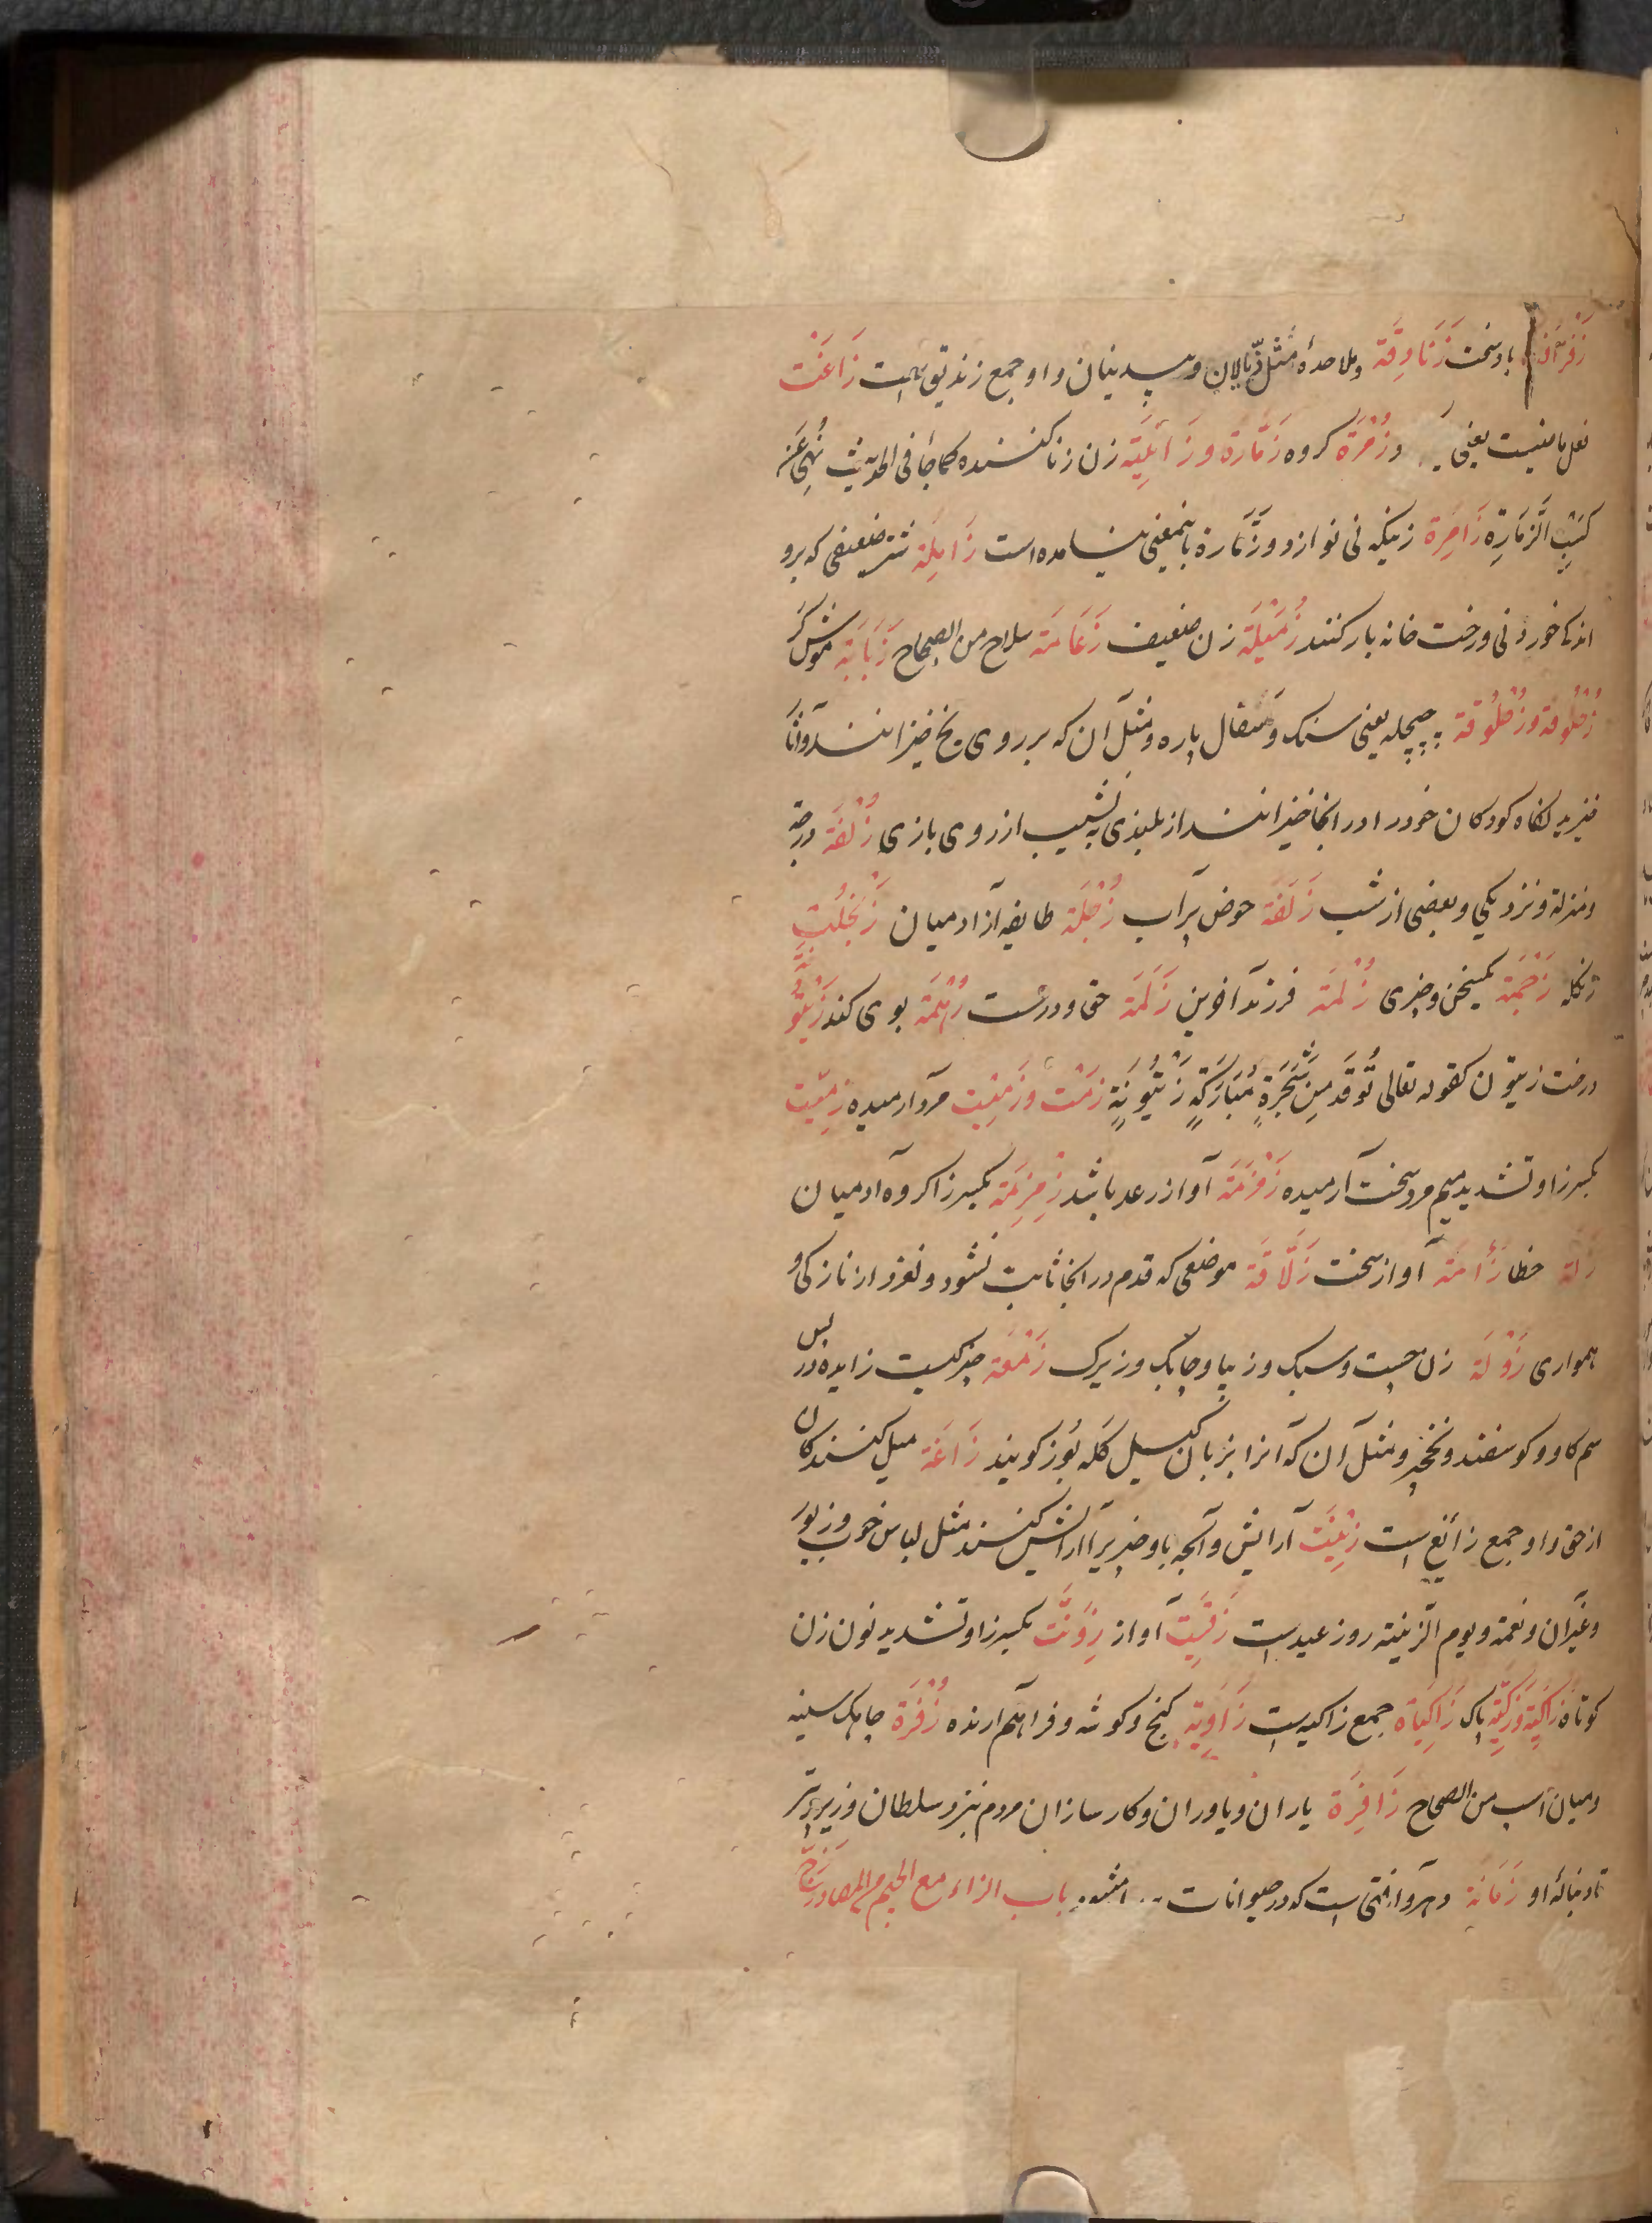 باد سخت زَنَادِقَة و ملاحده مثل دجالان و بیدینان و او جمع زندیق است زَاغَتْ
فعل ماضیست یعنی و زُمْرَة کروه زَمَّارَة و زَانِیَة زن زنا کننده کما جأ فی الحدیث نُهِیَ عَن
کَسْبِ الزَّمَّارَةِ زَامِرَة زنیکه نی نوازد و زَمَّارَة باینمعنی نیامده است زَامِلَة شتر ضعیفی که برو
اندک خوردنی و رخت خانه بار کنند زُمَّیْلَة زن ضعیف زَعَامَة سلاح من الصحاح زَبَابَة موش کر
زُحْلُوفَة و زُحْلُوقَة چیچله یعنی سنک و سفال پاره و مثل آن که بر روی یخ خیزانند و آنجا
نیز بد انکاه کودکان خود را در انجا خیزانند از بلندی به نشیب از روی بازی زُلْفَة درجه
و منزلة و نزدیکی و بعضی از شب زَلَفَة حوض پر آب زُجْلَة طایفه از ادمیان
زنکله زَحْمَة زُلْمَة زَلَمَة حق و درست زُهْمَة بوی کند زَیْتُونَة
درخت زیتون کقوله تعالی تُوقَد مِن شَجَرَةٍ مُبَارَکَةٍ زَیْتُونَةٍ زَمْت وَ زَمِیْت مرد آرمیده زِمِّیْت
بکسر زا و تشدید میم مرد سخت آرمیده زَمْزَمَة آواز رعد باشد زِمْزِمَة بکسر زا کروه آدمیان
زَلَّة خطا زَأمَة آواز سخت زَلَّاقَة موضعی که قدم در انجا ثابت نشود و لغزد از نازکی و
همواری زَوْلَة زن چست و سبک و زیبا و چابک و زیرک زَمَعَة چیزکیست زایده در پس
سم کاو و کوسفند و نخجیر و مثل آن که آنرا بزبان کیل کله بوز کویند زَاغَة میل کنندکان
از حق و او جمع زائغ است زِیْنَت آرایش و آنچه باو چیزیرا آرایش کنند مثل لباس خوب و زیور
و غیر آن و نعمة و یوم الزینة روز عیدست زَقِیَّت آواز زِوَنَّت بکسر زا و تشدید نون زن
کوتاه زَاکِیَة وَ زَکِیَّة پاک زَاکِیَاة جمع زاکیه است زَاوِیَة کنج و کوشه و فراهم آرنده زُفْرَة جایکه سینه
و میان اسب من الصحاح زَافِرَة یاران و یاوران و کارسازان مردم نزد سلطان و زیر پر تیر
تا دنباله او زَمَانَة دهر و آفتی است که در حیوانات باب الزاء مع الجیم المصادر زَجّ